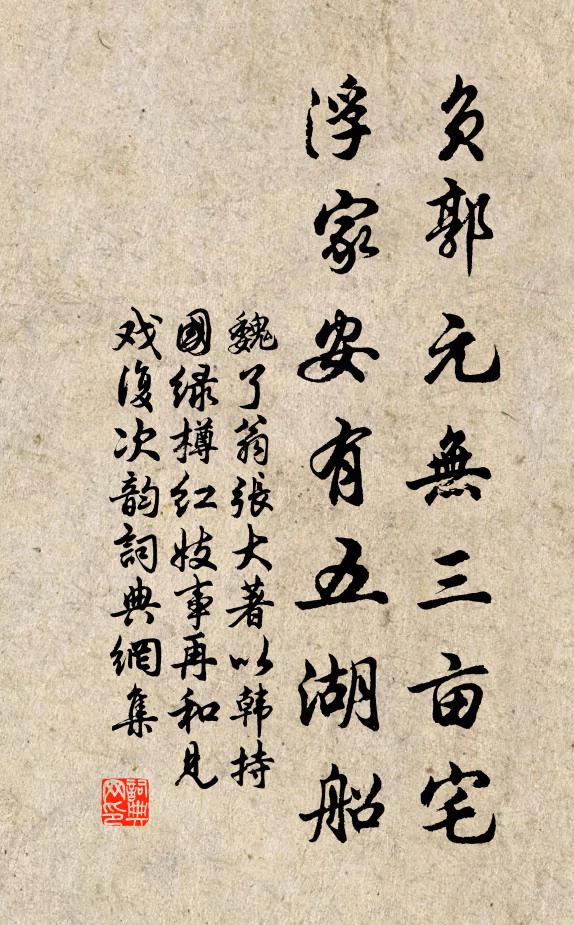 负郭元無三亩宅
浮家安有五湖船
魏了翁張大著以韩持
國绿樽红妓事再和見
戏復次韵詞典網集
詞典網印